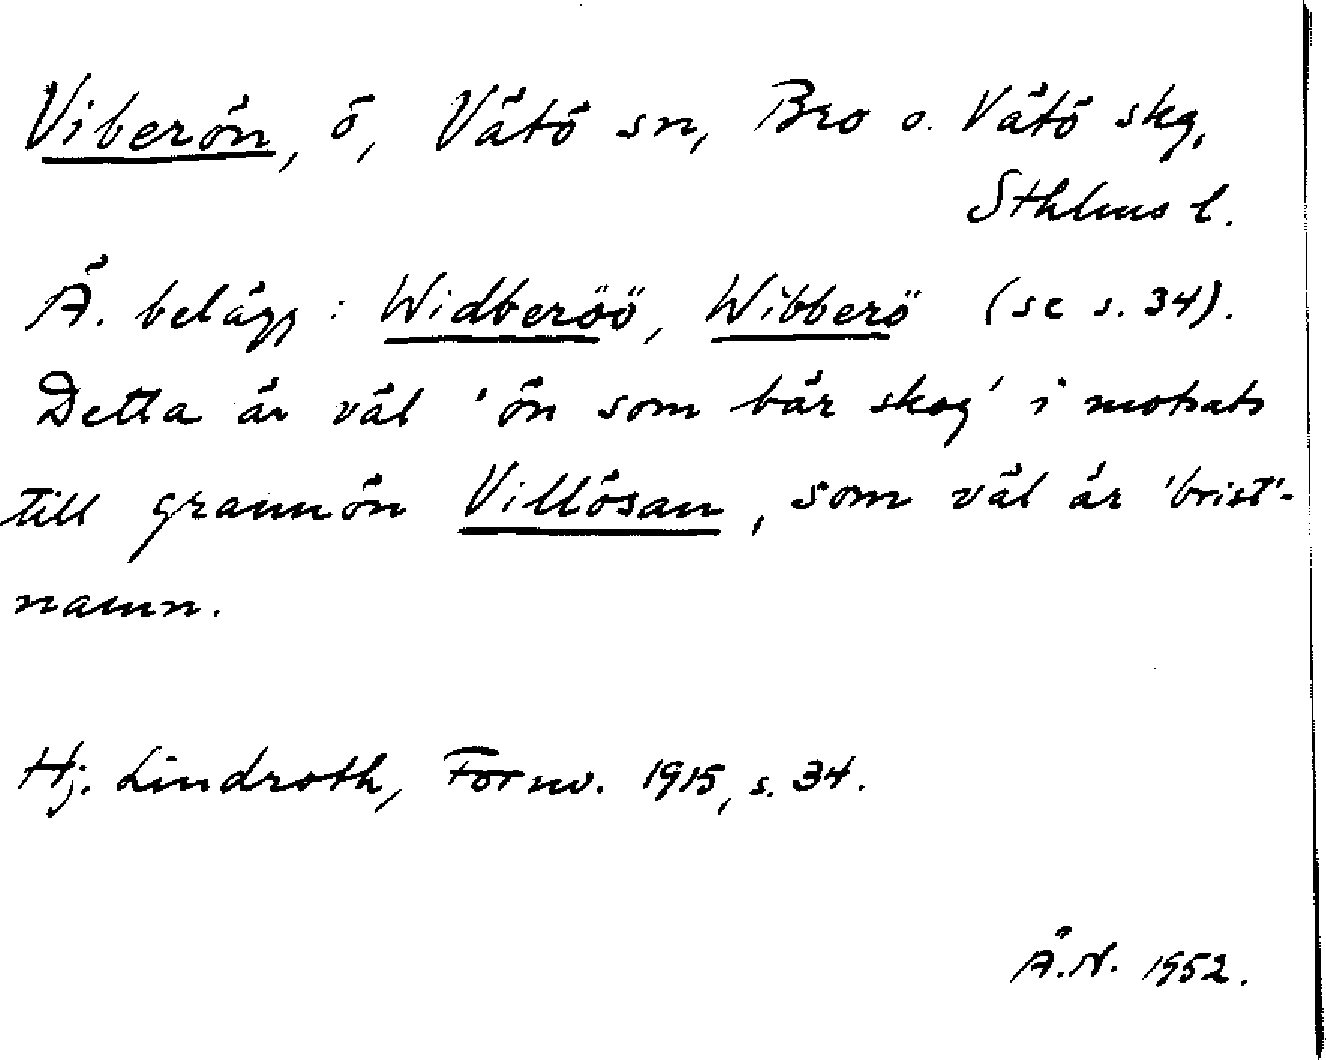 Viberön, ö, Vätö sn, Bro o. Vätö skg,
Sthlms l.
Ä. belägg: Widberöö, Wibberö (se s. 34).
Detta är väl 'ön som bär skog' i motsats
till grannön Villösan, som väl är 'brist'-
namn.
Hj. Lindroth, Fornv. 1915, s. 34.
Å.N. 1952.